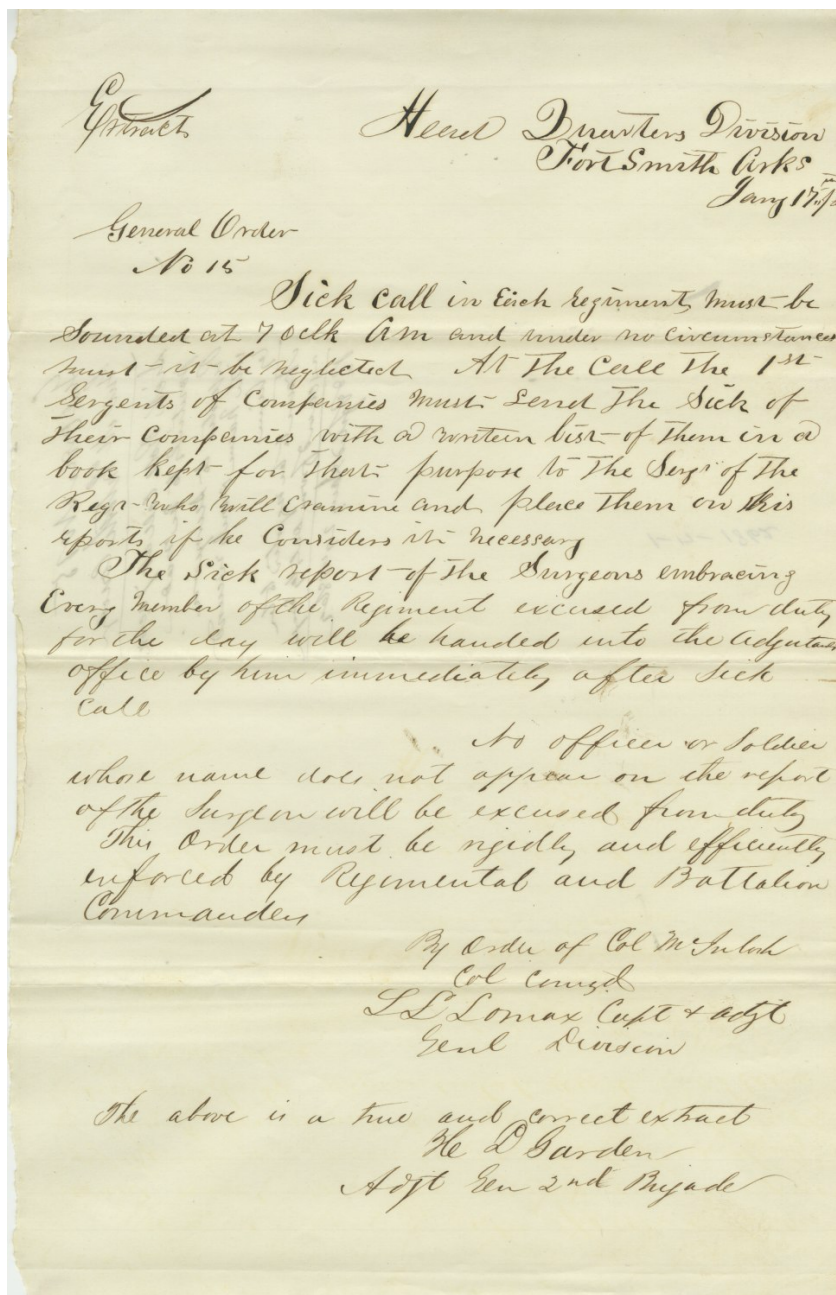 Extract
Head Quarters Division
Fort Smith Arks
Jany 17th
General Order
No 15
Sick call in Each Regiment must be
Sounded at 7 oclk Am and under no circumstances
must it be neglected At The Call The 1st
Sergents of Companies must Send The Sick of
Their Companies with a writen list of them in a
book kept for That purpose to The Surgn of The
Regt who will Examine and place Them on his
reports if he Considers it necessary
The Sick report of The Surgeons embracing
Every Member of the Regiment excused from duty
for the day will be handed into the adjutants
office by him immediately after Sick
Call
No officer or Soldier
whose name does not appear on the report
of the Surgeon will be excused from duty
This Order must be rigidly and efficiently
enforced by Regimental and Battalion
Commanders
By Order of Col McIntosh
Col Comgd
L L Lomax Capt & adjt
Genl Division
The above is a true and correct extract
He D Garden
Adjt Gen 2nd Brigade